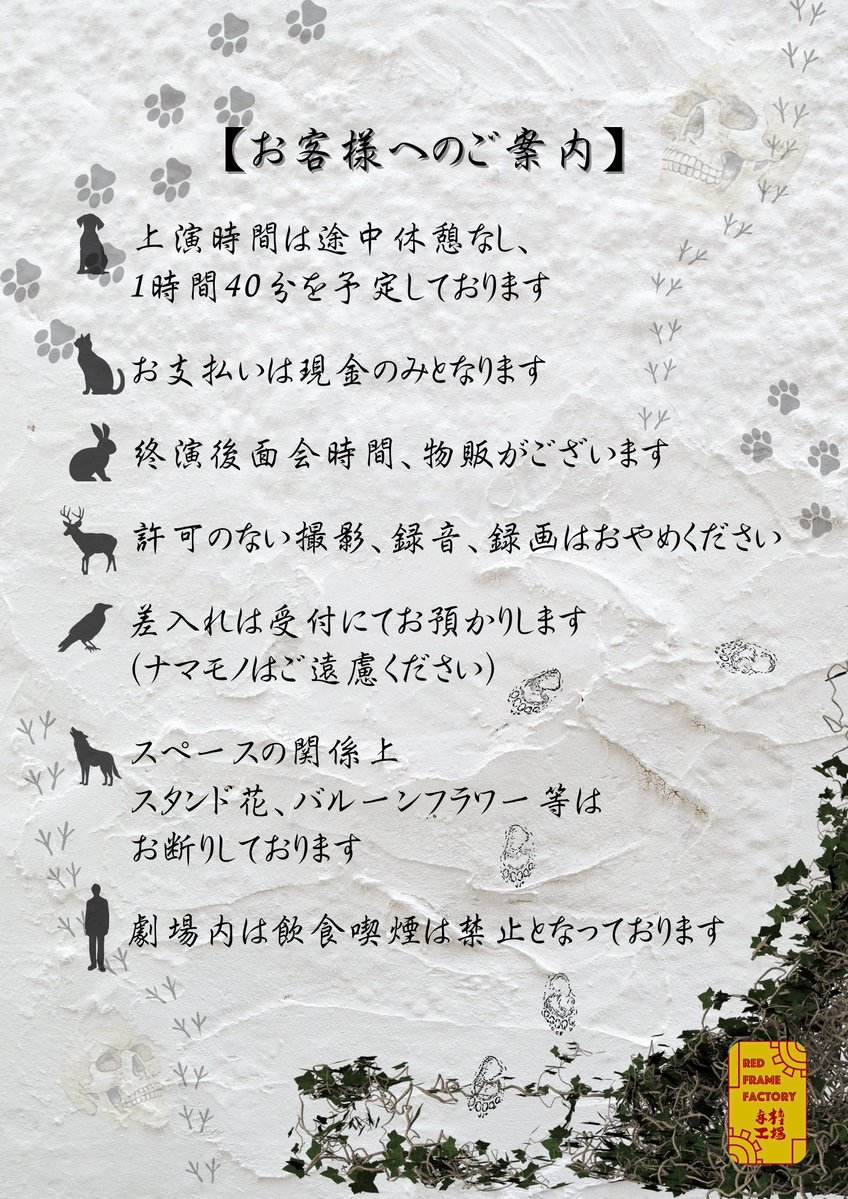 【お客様へのご案内】
上演時間は途中休憩なし、
1時間40分を予定しております
お支払いは現金のみとなります
終演後面会時間、物販がございます
許可のない撮影、録音、録画はおやめください
差入れは受付にてお預かりします
(ナマモノはご遠慮ください)
スペースの関係上
スタンド花、バルーンフラワー等は
お断りしております
劇場内は飲食喫煙は禁止となっております
RED
FRAME
FACTORY
工場